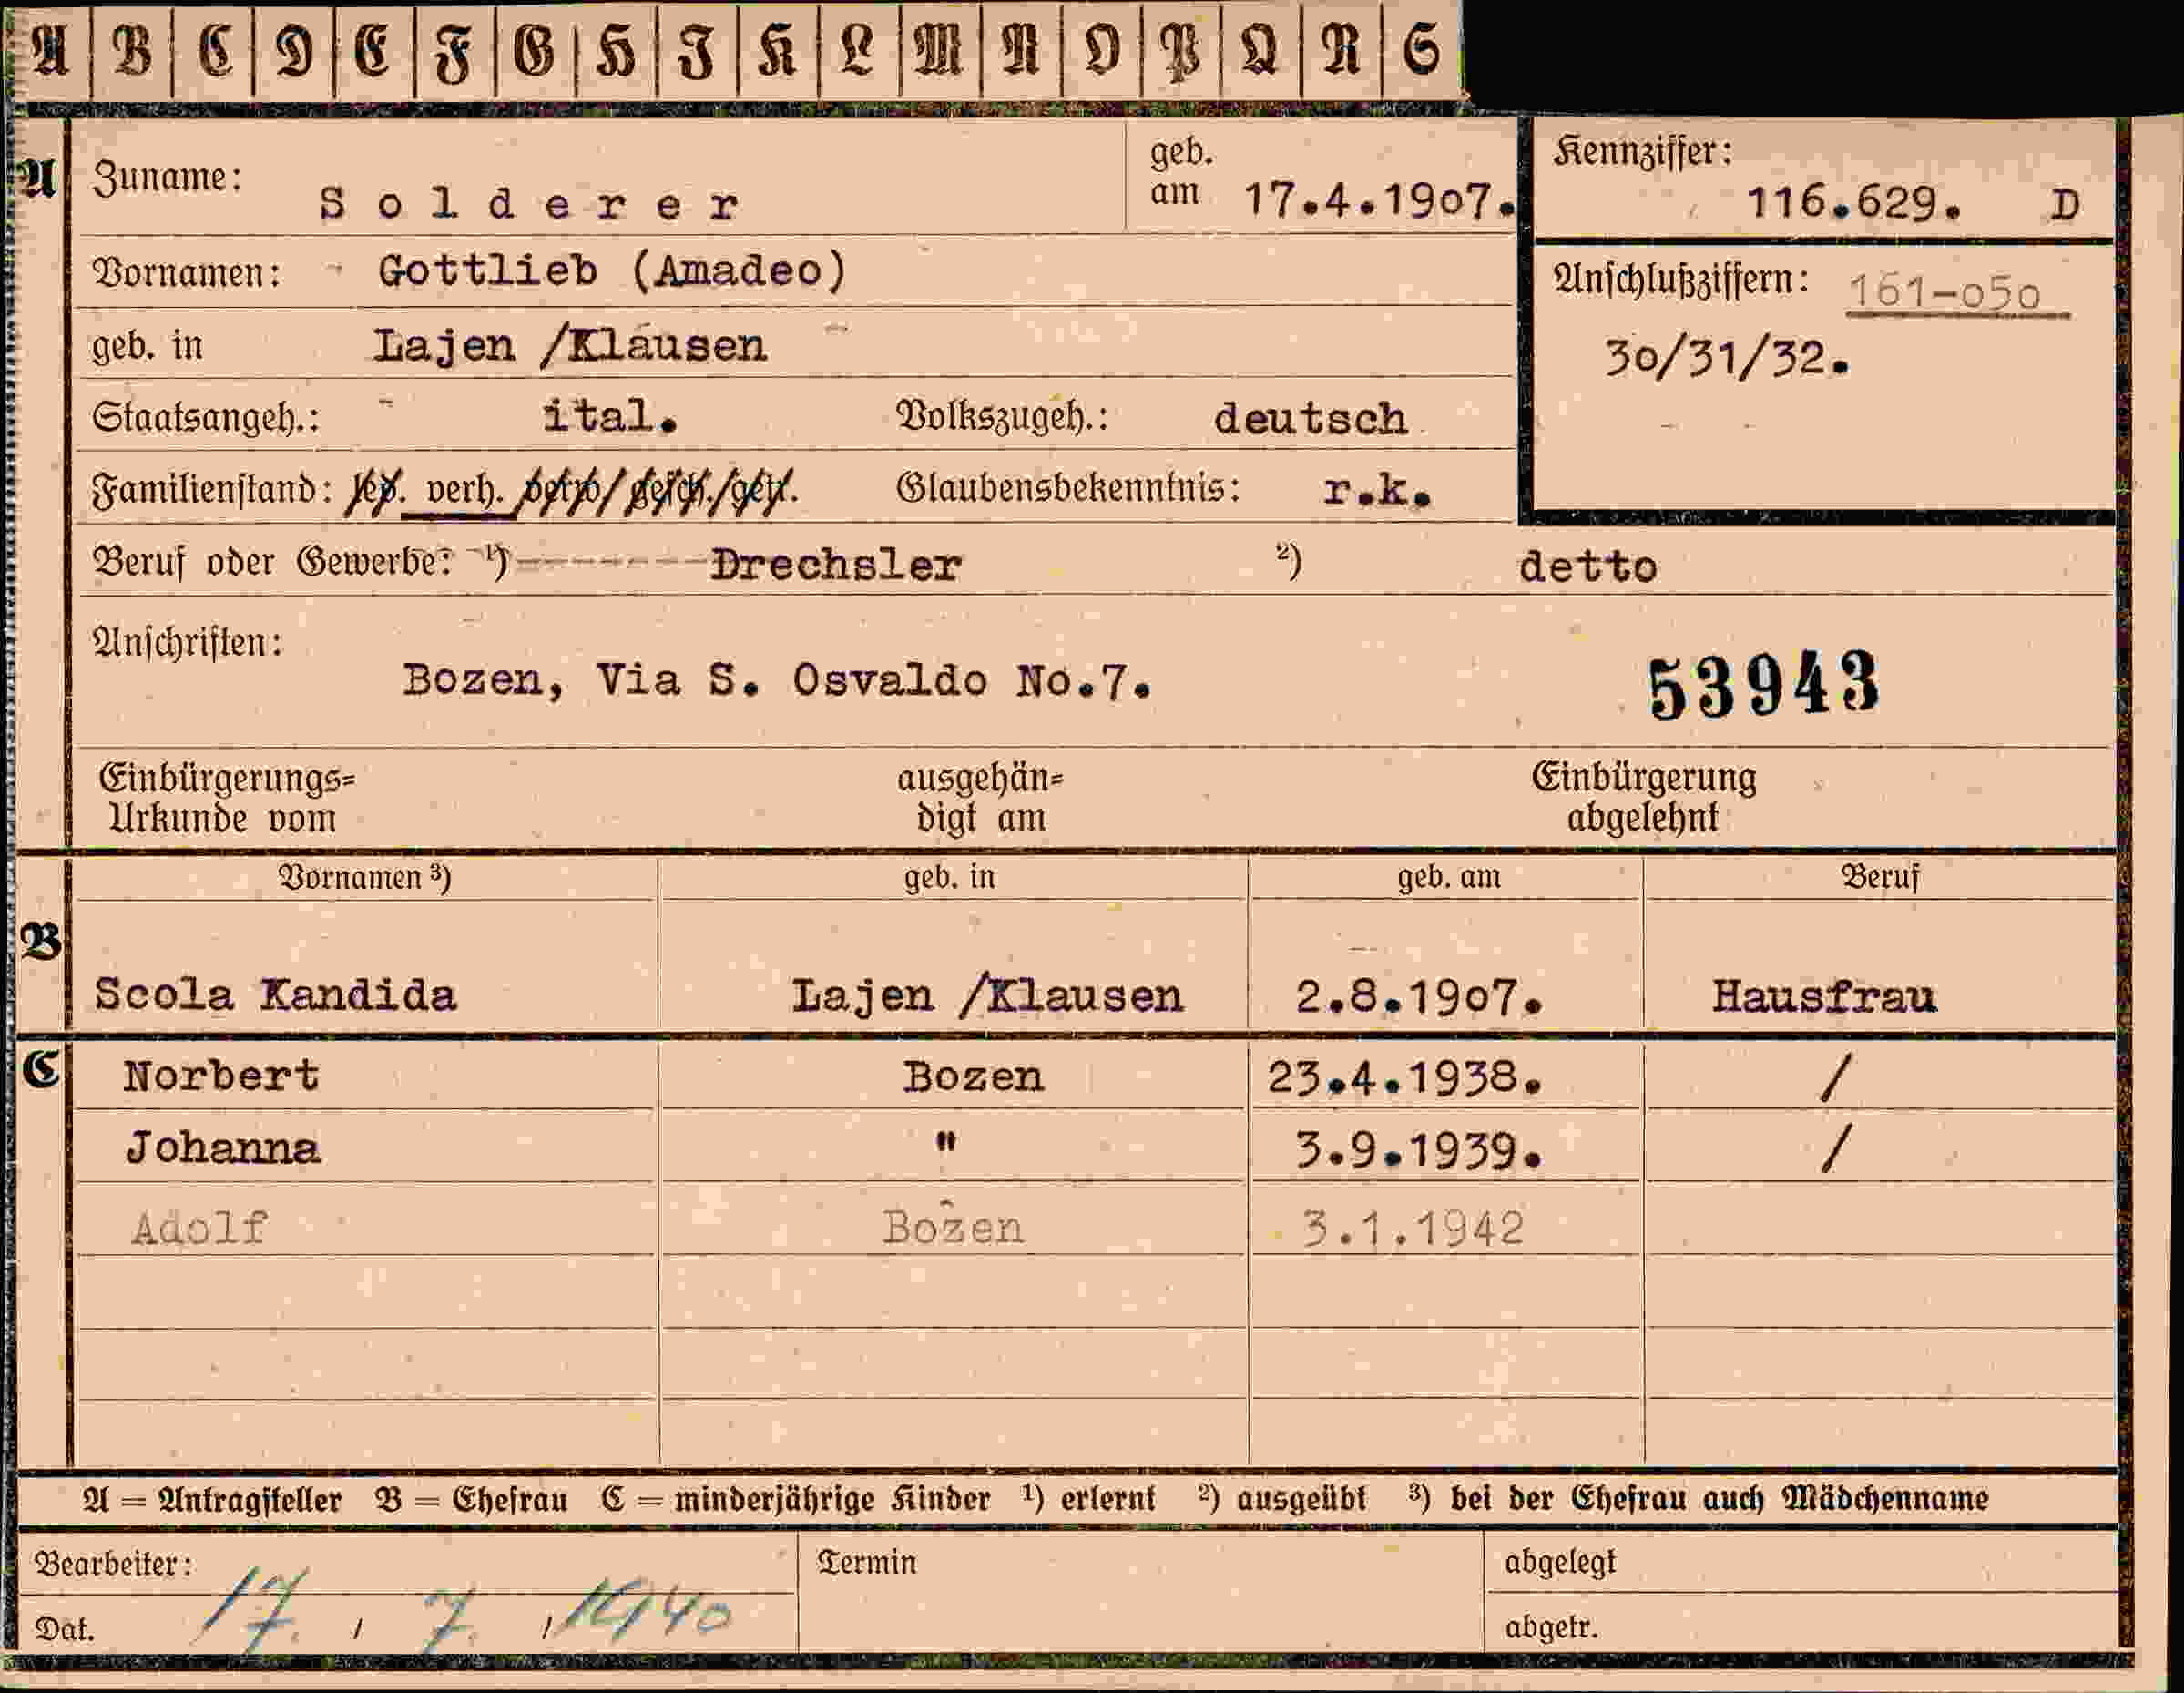 A B C D E F G H J K L M N O P Q R S
A Zuname: Solderer geb. am 17.4.19o7. Kennziffer: 116.629. D
Vornamen: Gottlieb (Amadeo) Anschlußziffern: 161-o5o
geb. in Lajen /Klausen 3o/31/32.
Staatsangeh.: ital. Volkszugeh.: deutsch
Familienstand: led. verh. verw/gesch./getr. Glaubensbekenntnis: r.k.
Beruf oder Gewerbe: ¹)-------Drechsler ²) detto
Anschriften:
Bozen, Via S. Osvaldo No.7. 53943
Einbürgerungs= ausgehän= Einbürgerung
Urkunde vom digt am abgelehnt
Vornamen ³) geb. in geb. am Beruf
B
Scola Kandida Lajen /Klausen 2.8.19o7. Hausfrau
C Norbert Bozen 23.4.1938. /
Johanna " 3.9.1939. /
Adolf Bozen 3.1.1942
A = Antragsteller B = Ehefrau C = minderjährige Kinder ¹) erlernt ²) ausgeübt ³) bei der Ehefrau auch Mädchenname
Bearbeiter: Termin abgelegt
Dat. 17. / 7. / 1940 abgetr.